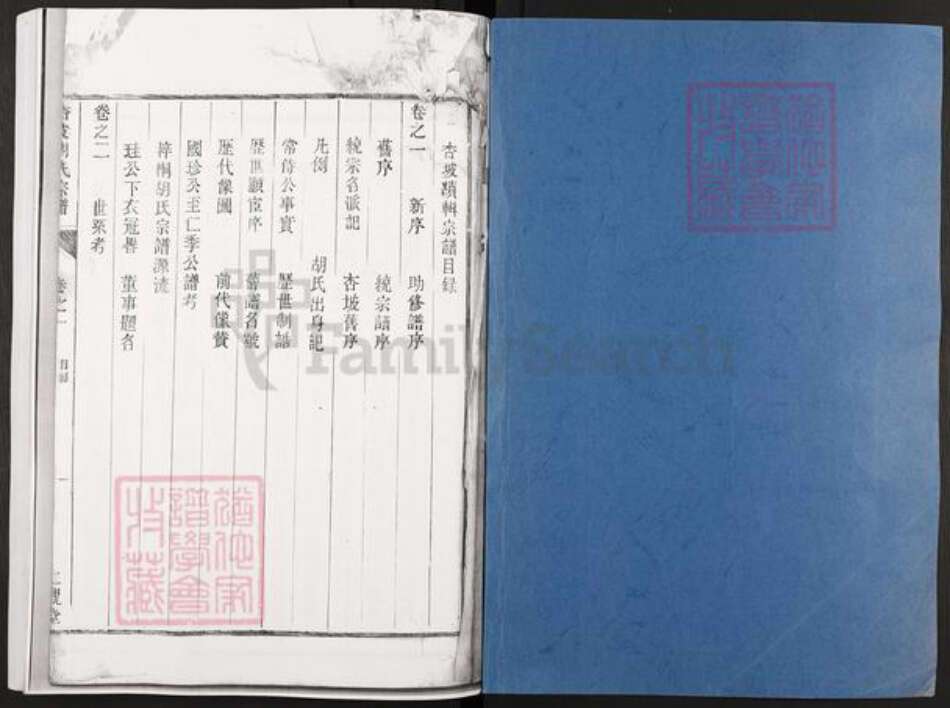 杏坡續輯宗譜目錄
卷之一 新序 助修譜序
舊序 統宗譜序
統宗名派記 杏坡舊序
凡例 胡氏出身記
常侍公事實 歷世制誥
歷世顯宦序 舊譜名
歷代像圖 前代像贊
國珍公至仁季公譜考
梓桐胡氏宗譜源流
卷之二 世系考
珏公下衣冠 董事題名
杏坡胡氏宗譜 卷之一 目錄 一
猶他家譜學會收藏
猶他家譜學會收藏
FamilySearch